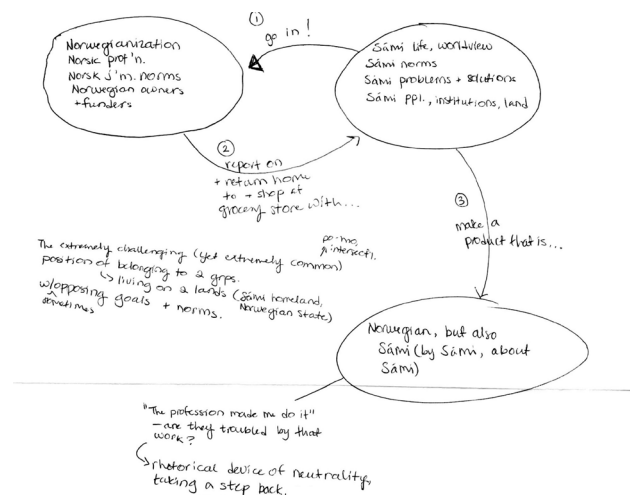 ①
go in!
Norwegianization
Norsk prof'n.
Norsk j'm. norms
Norwegian owners
+ funders
Sámi life, worldview
Sámi norms
Sámi problems + solutions
Sámi ppl., institutions, land
②
report on
+ return home
to + shop at
grocery store with...
③
make a
product that is...
The extremely challenging (yet extremely common)
po-mo,
intersect.
position of belonging to 2 grps.
↳ living on 2 lands (Sámi homeland,
Norwegian State)
w/opposing goals + norms.
sometimes
Norwegian, but also
Sámi (by Sámi, about
Sámi)
"The profession made me do it"
– are they troubled by that
work?
↳ rhetorical device of neutrality,
taking a step back.